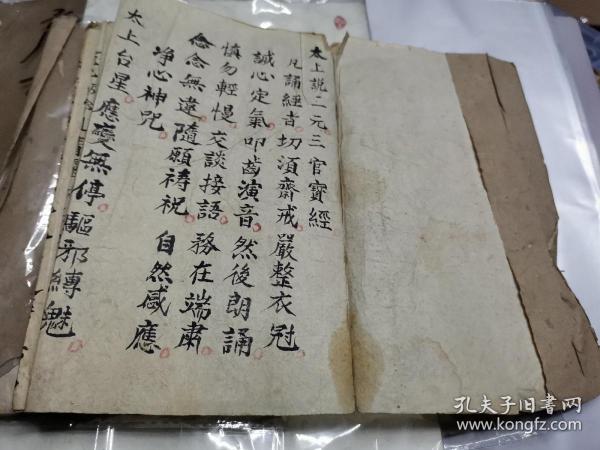 太上說二元三官寳經
凡誦經者切須齋戒嚴整衣冠
誠心定氣叩齒演音然後朗誦
慎勿輕慢交談接語務在端肅
念念無違隨願禱祝自然感應
淨心神咒
太上台星應變無停驅邪縛魅
孔夫子旧书网
www.kongfz.com